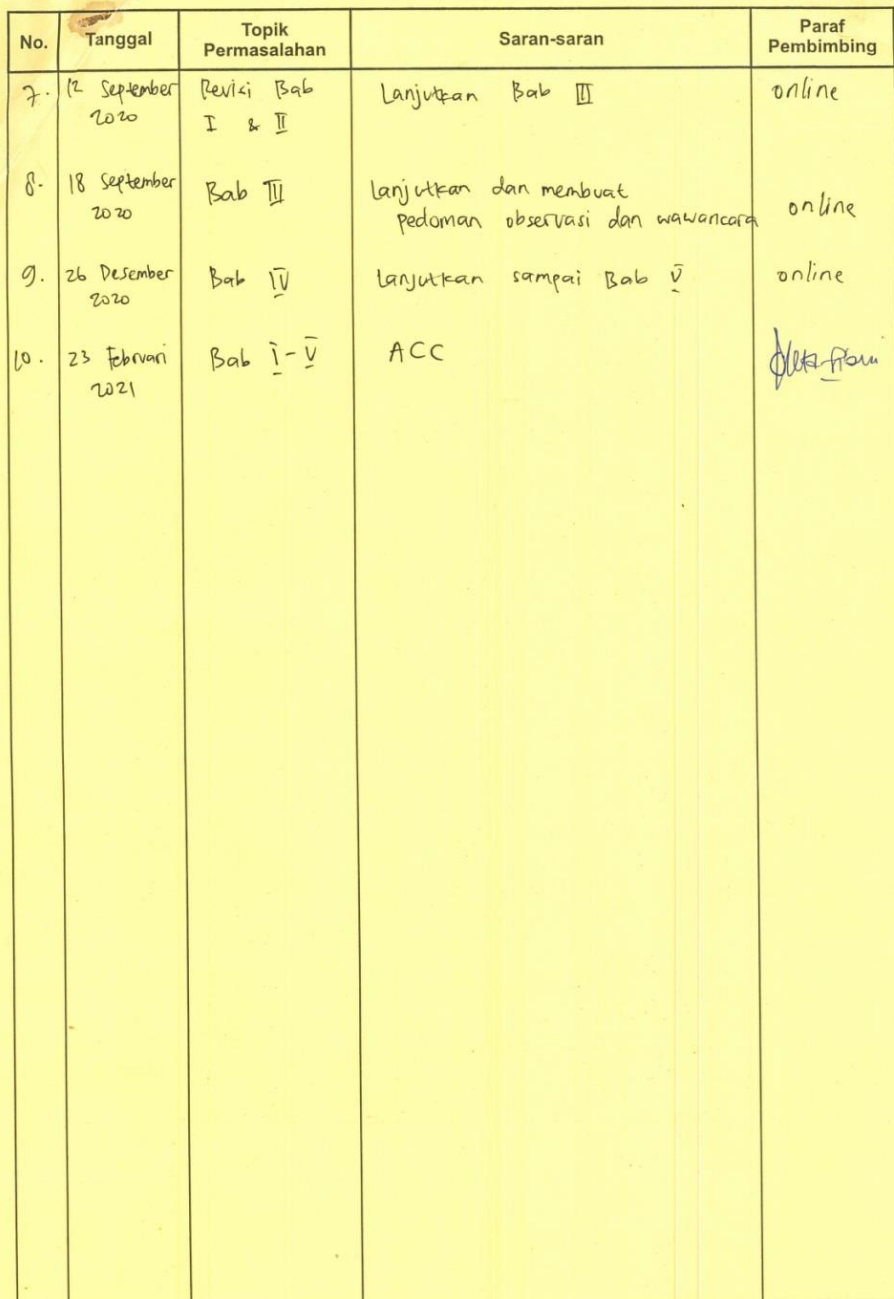 No. Tanggal Topik Permasalahan Saran-saran Paraf Pembimbing
7. 12 September Revisi Bab Lanjutkan Bab III online
2020 I & II
8. 18 September Bab III Lanjutkan dan membuat
2020 pedoman observasi dan wawancara online
9. 26 Desember Bab IV Lanjutkan sampai Bab V online
2020
10. 23 Februari Bab I-V ACC
2021